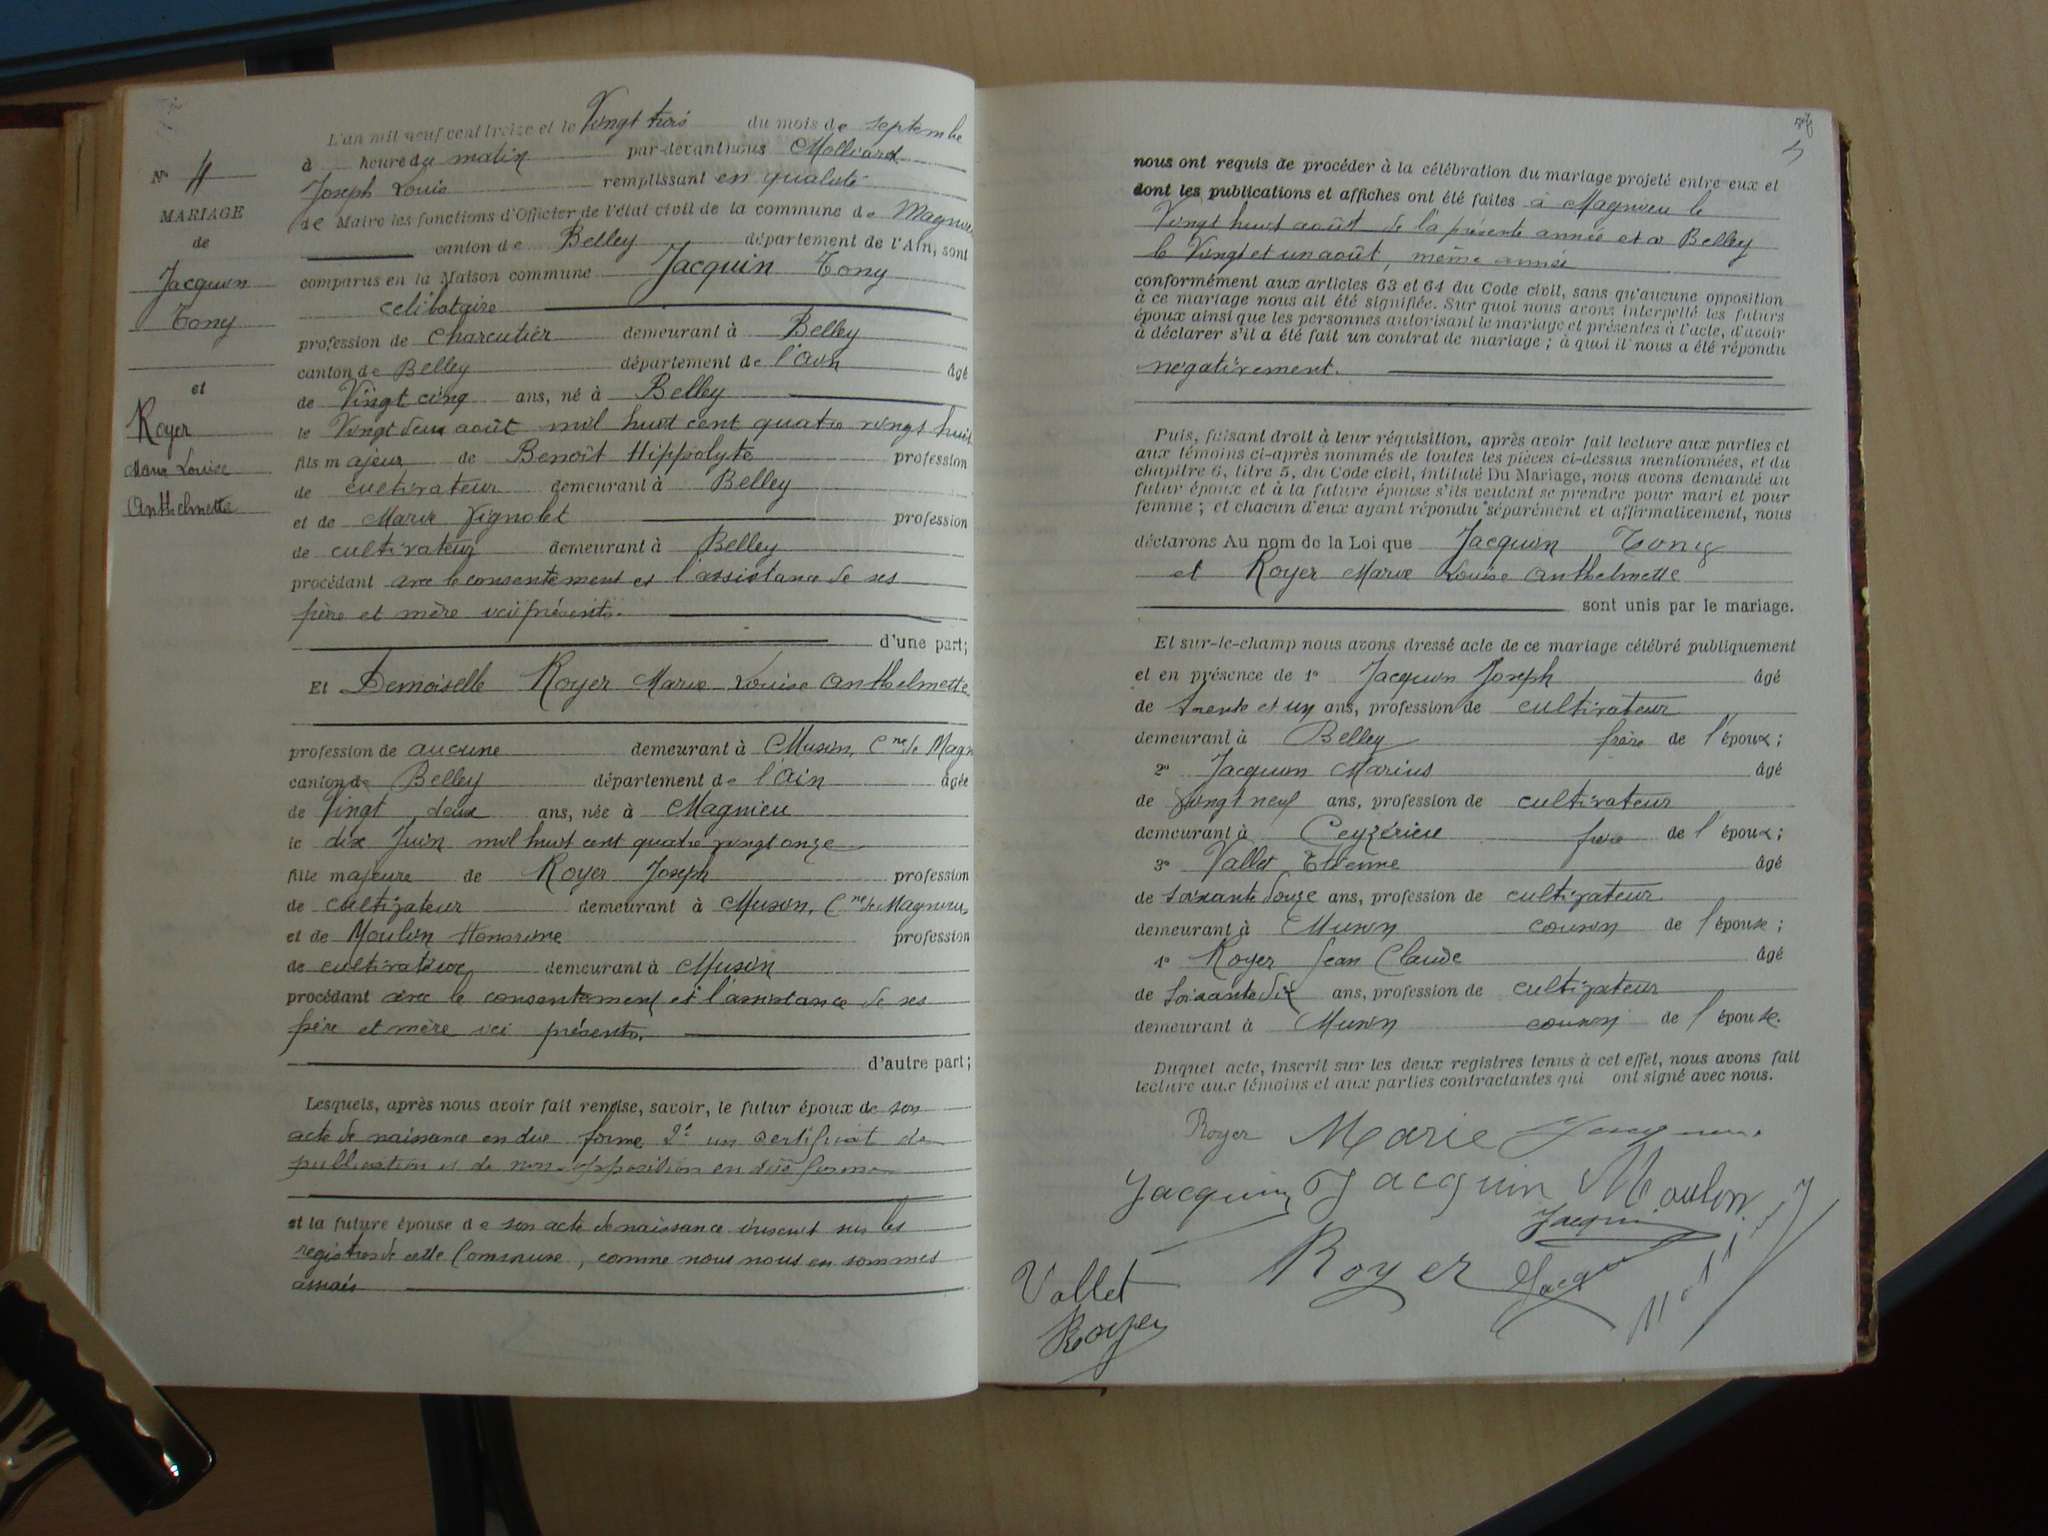 L'an mil neuf cent treize et le Vingt trois du mois de septembre
à heure du matin par-devant nous Molliard
Joseph Louis remplissant en qualité
de Maire les fonctions d'Officier de l'état civil de la commune de Magnieu
canton de Belley département de l'Ain, sont
comparus en la Maison commune Jacquin Tony
celibataire
profession de charcutier demeurant à Belley
canton de Belley département de l'Ain âgé
de Vingt cinq ans, né à Belley
le Vingt deux août mil huit cent quatre vingt huit
fils majeur de Benoît Hippolyte profession
de cultivateur demeurant à Belley
et de Marie Vignolet profession
de cultivateur demeurant à Belley
procédant avec le consentement et l'assistance de ses
père et mère ici présents.
d'une part;
Et Demoiselle Royer Marie Louise Anthelmette
profession de aucune demeurant à Musin, Cne de Magn
canton de Belley département de l'Ain âgée
de Vingt deux ans, née à Magnieu
le dix Juin mil huit cent quatre vingt onze
fille majeure de Royer Joseph profession
de cultivateur demeurant à Musin, Cne de Magnieu,
et de Moulin Honorine profession
de cultivatrice demeurant à Musin
procédant avec le consentement et l'assistance de ses
père et mère ici présents.
d'autre part;
Lesquels, après nous avoir fait remise, savoir, le futur époux de son
acte de naissance en due forme 2° un certificat de
publication et de non-opposition en due forme
et la future épouse de son acte de naissance inscrit sur les
registres de cette Commune, comme nous nous en sommes
assurés
N° 4
MARIAGE
de
Jacquin
Tony
et
Royer
Marie Louise
Anthelmette
nous ont requis de procéder à la célébration du mariage projeté entre eux et
dont les publications et affiches ont été faites à Magnieu le
Vingt huit août de la présente année et à Belley
le Vingt et un août, même année
conformément aux articles 63 et 64 du Code civil, sans qu'aucune opposition
à ce mariage nous ait été signifiée. Sur quoi nous avons interpellé les futurs
époux ainsi que les personnes autorisant le mariage et présentes à l'acte, d'avoir
à déclarer s'il a été fait un contrat de mariage; à quoi il nous a été répondu
négativement.
Puis, faisant droit à leur réquisition, après avoir fait lecture aux parties et
aux témoins ci-après nommés de toutes les pièces ci-dessus mentionnées, et du
chapitre 6, titre 5, du Code civil, intitulé Du Mariage, nous avons demandé au
futur époux et à la future épouse s'ils veulent se prendre pour mari et pour
femme; et chacun d'eux ayant répondu séparément et affirmativement, nous
déclarons Au nom de la Loi que Jacquin Tony
et Royer Marie Louise Anthelmette
sont unis par le mariage.
Et sur-le-champ nous avons dressé acte de ce mariage célébré publiquement
et en présence de 1° Jacquin Joseph âgé
de trente et un ans, profession de cultivateur
demeurant à Belley frère de l'époux;
2° Jacquin Marius âgé
de vingt neuf ans, profession de cultivateur
demeurant à Ceyzérieu frère de l'époux;
3° Vallet Etienne âgé
de soixante douze ans, profession de cultivateur
demeurant à Musin cousin de l'épouse;
4° Royer Jean Claude âgé
de soixante dix ans, profession de cultivateur
demeurant à Musin cousin de l'épouse.
Duquel acte, inscrit sur les deux registres tenus à cet effet, nous avons fait
lecture aux témoins et aux parties contractantes qui ont signé avec nous.
Royer Marie Jacquin
Jacquin Jacquin Moulin
Jacquin
Royer Jacq
Vallet
Royer